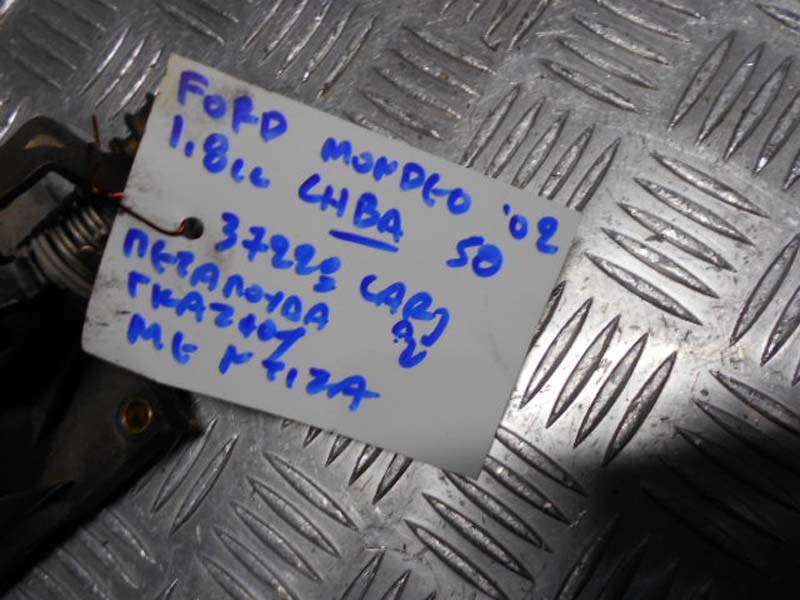 FORD MONDEO '02
1.8cc CHBA 50
37229 CARJ
ΠΕΤΑΛΟΥΔΑ 2
ΓΚΑΖΙΟΥ
ΜΕ ΝΤΙΖΑ